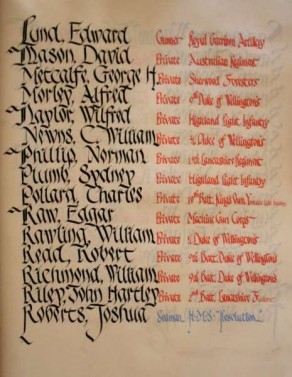 Lund, Edward Gunner Royal Garrison Artillery
Mason, David Private Australian Regiment
Metcalfe, George H. Private Sherwood Foresters
Morley, Alfred Private Duke of Wellington's
Naylor, Wilfred Private Highland Light Infantry
Newns, C. William Private Duke of Wellington's
Phillip, Norman Private Lancashire Regiment
Plumb, Sydney Private Highland Light Infantry
Pollard, Charles Private Batt. King's Own
Raw, Edgar Private Machine Gun Corps
Rawling, William Private Duke of Wellington's
Read, Robert Private 9th Batt. Duke of Wellington's
Richmond, William Private 9th Batt. Duke of Wellington's
Riley, John Hartley Private 2nd Batt. Lancashire
Roberts, Joshua Seaman H.M.S. "Resolution"